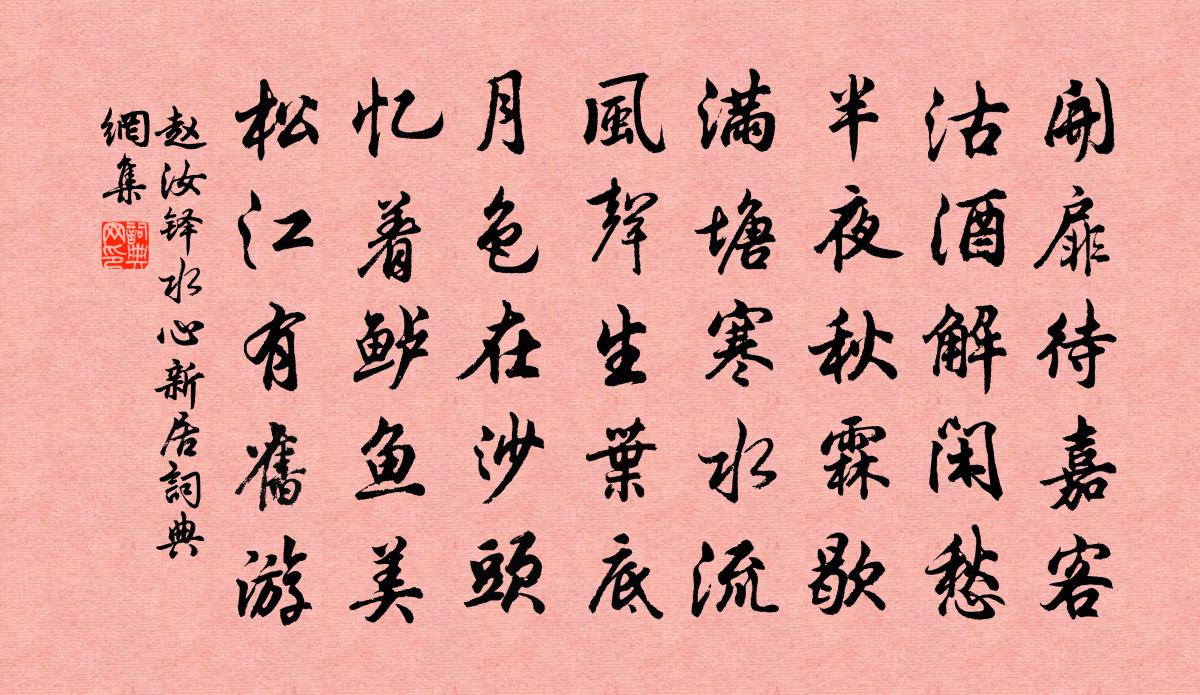 開扉待嘉客
沽酒解闲愁
半夜秋霖歇
满塘寒水流
風聲生葉底
月色在沙頭
忆着鲈鱼美
松江有舊游
赵汝铎水心新居詞典
網集
詞典網印